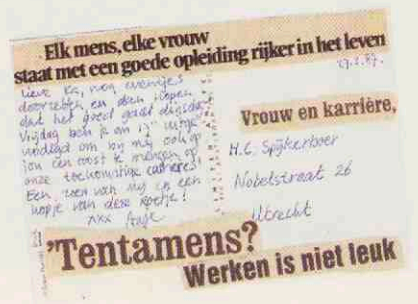 Elk mens, elke vrouw
staat met een goede opleiding rijker in het leven
Lieve Ka, nog eventjes
doorzetten, en dan hopen
dat het goed gaat dinsdag
Vrijdag ben ik om 17 uitge
nodigd om bij mij ook op
jou een toost te
onze toekomstige carrières!
Een zoen van mij en een
kopje van deze
xxx
Vrouw en karrière,
H.C. Spijkerboer
Nobelstraat 26
Utrecht
'Tentamens?
Werken is niet leuk